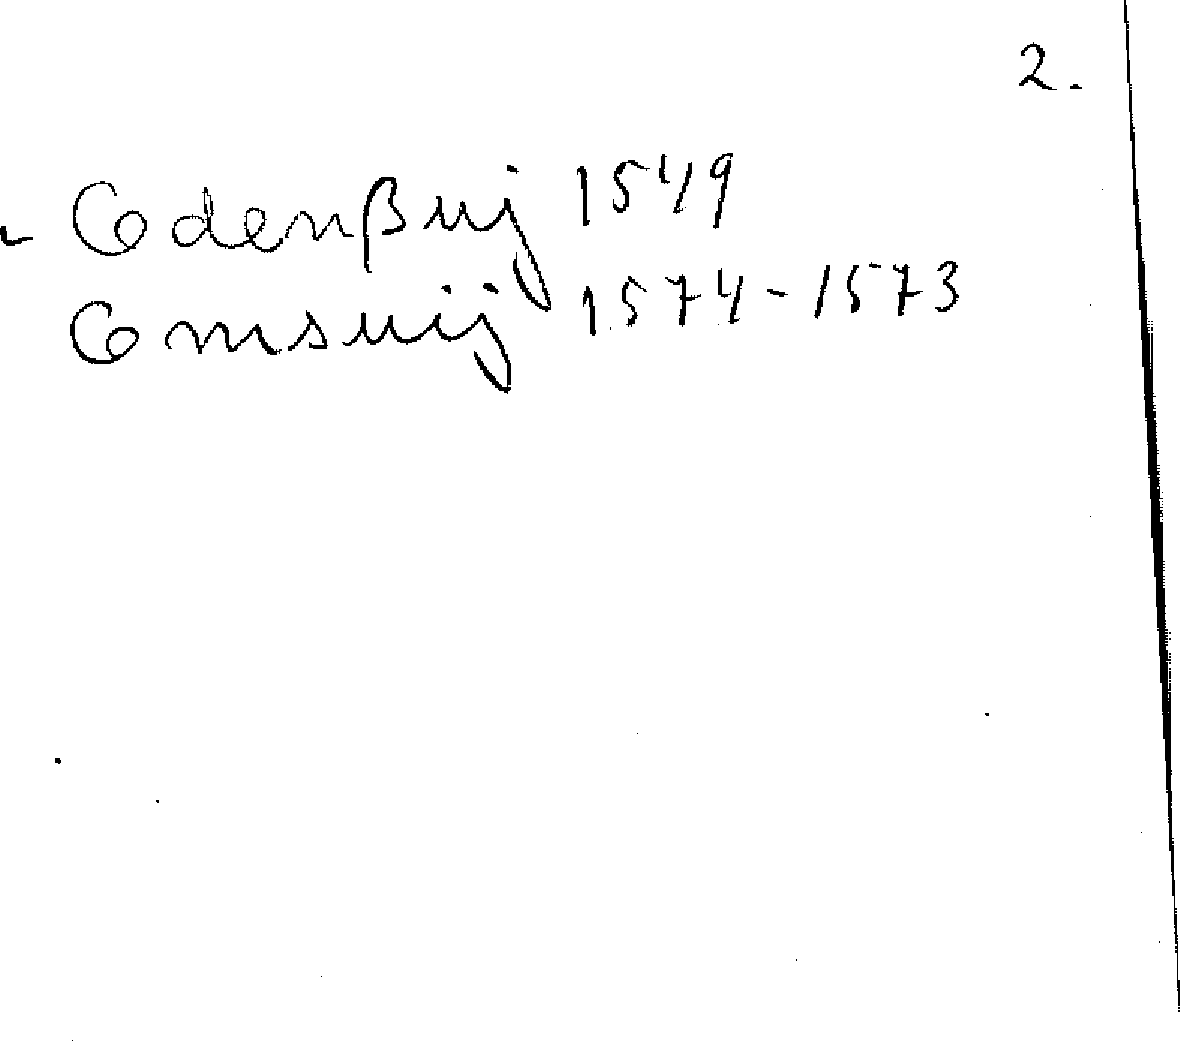 2.
OdenBuij 1549
Omsuij 1574-1573